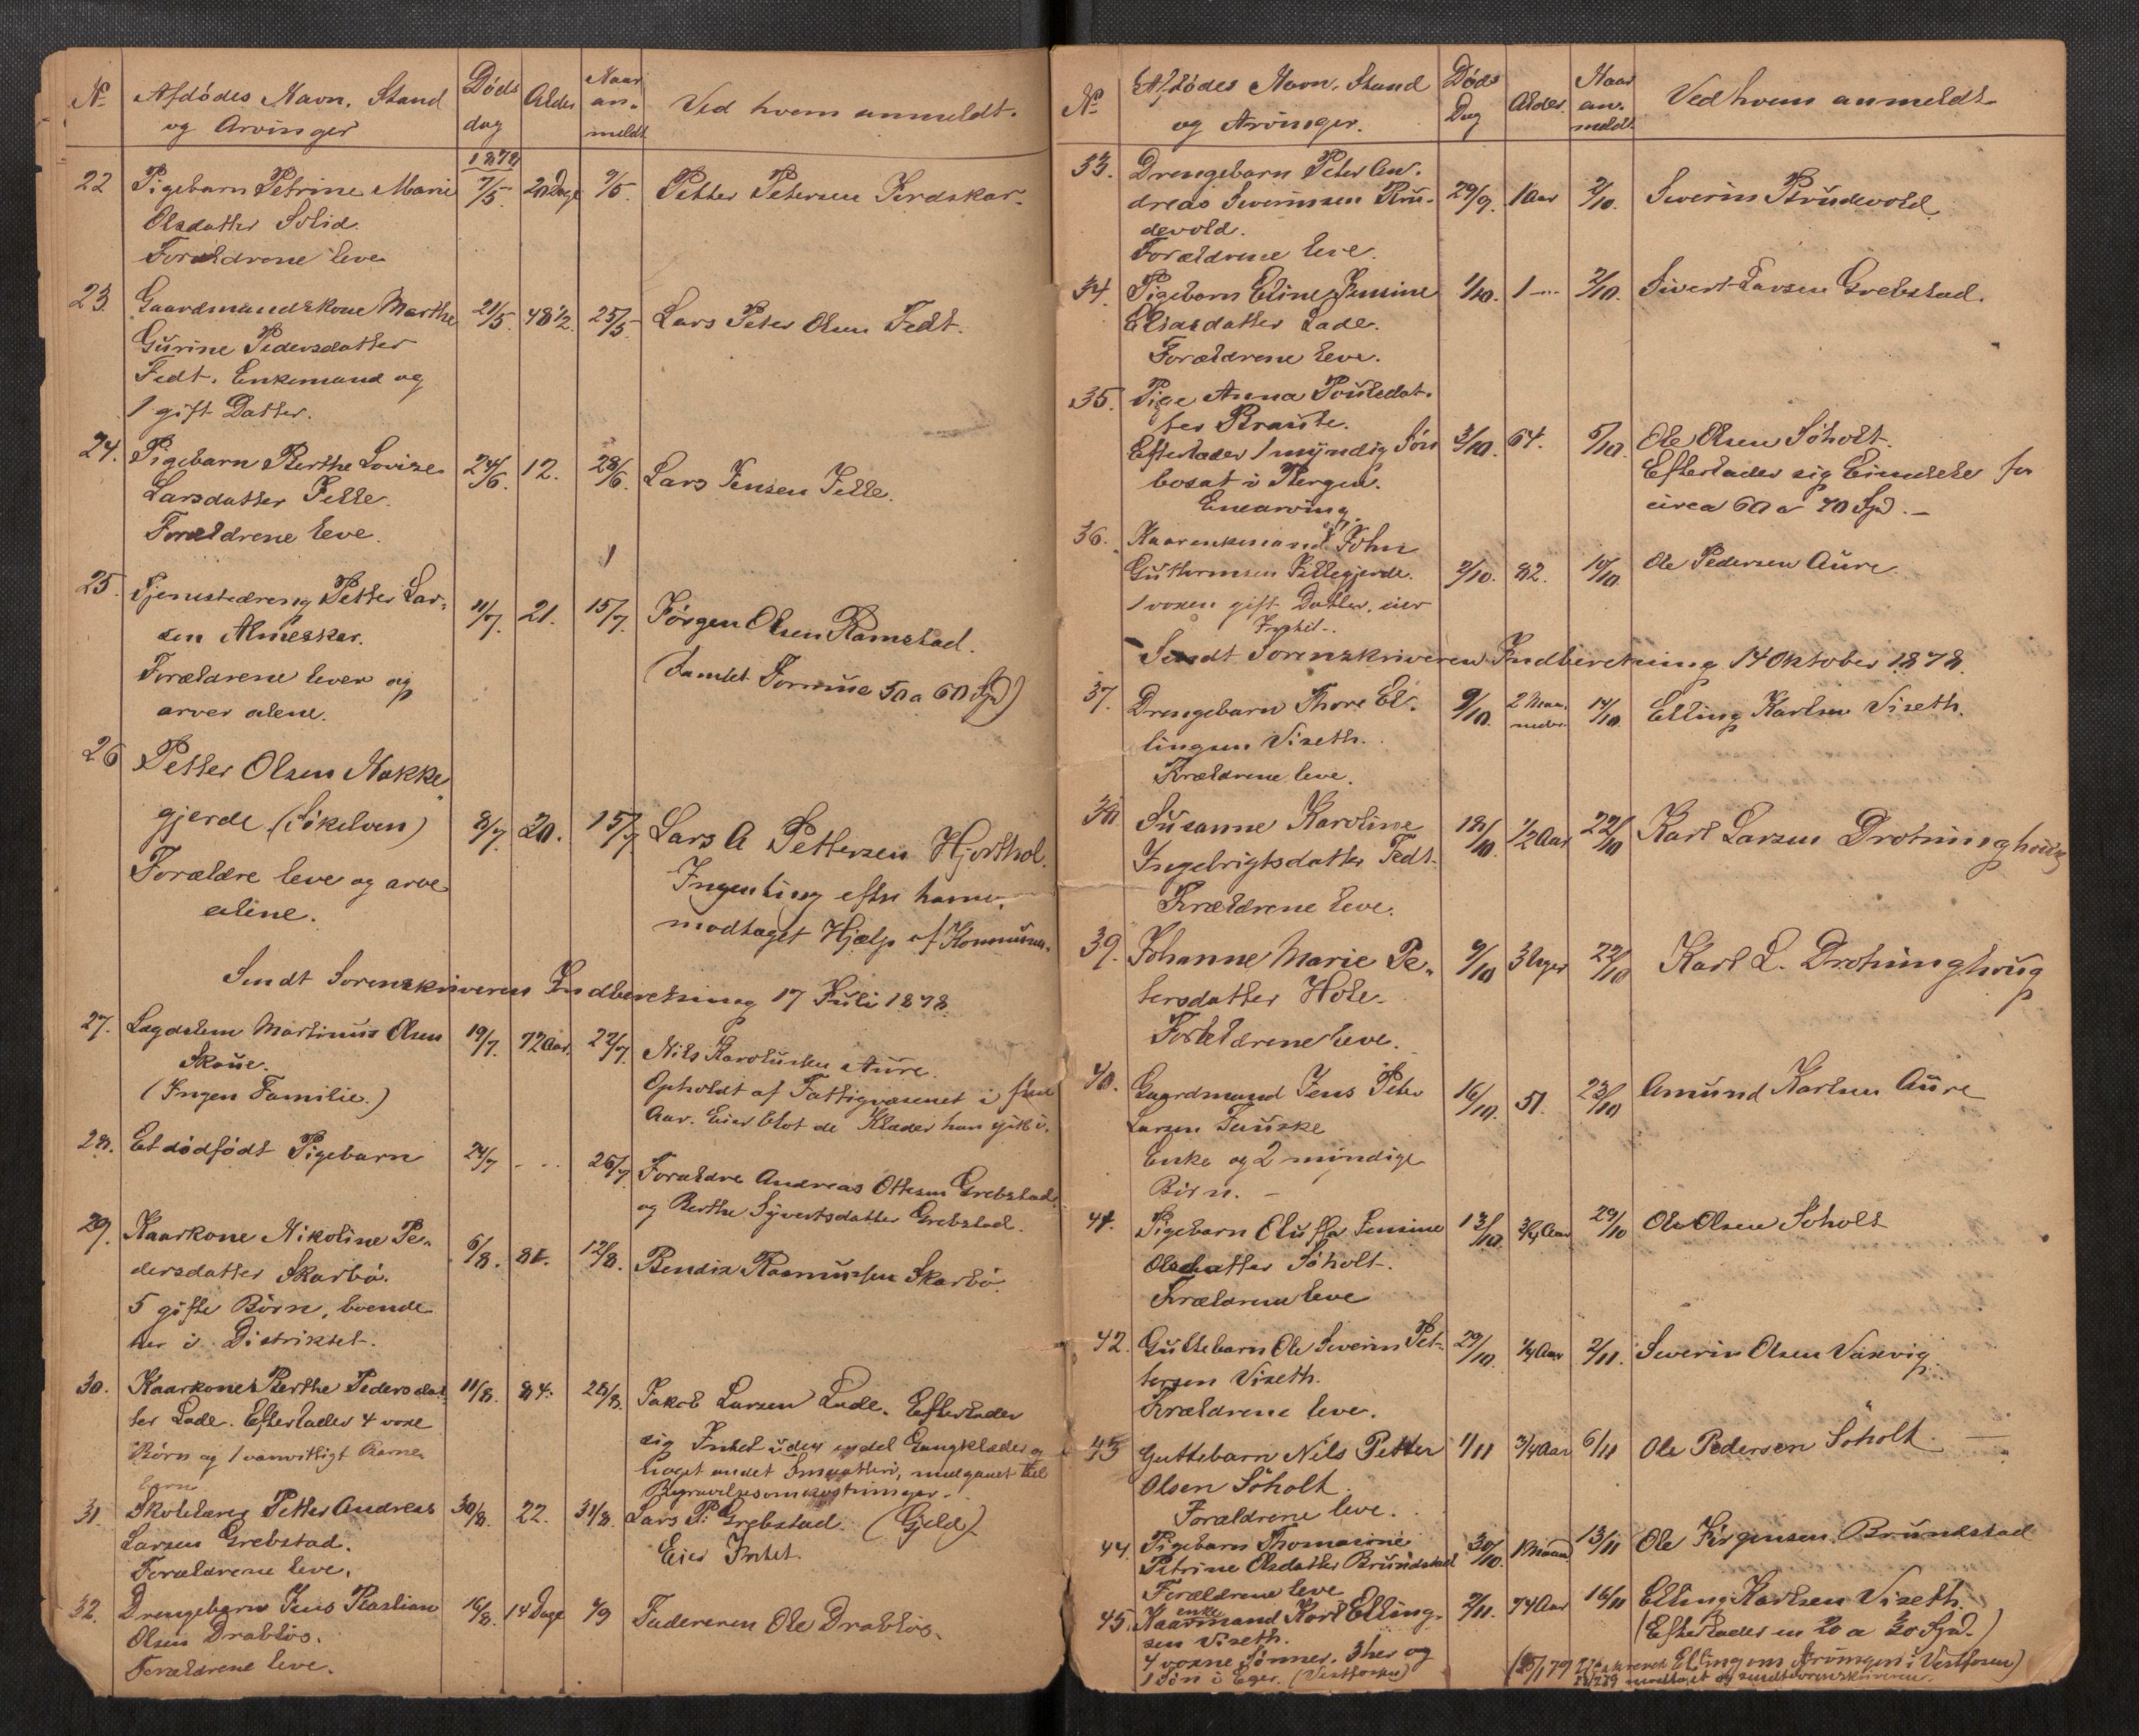 No Afdödes Navn, Stand og Arvinger Döds dag Alder Naar anmeldt Ved hvem anmeldt.
1878
22 Pigebarn Petrine Marie 7/5 20 Dage 9/5. Petter Petersen
Olsdatter Solid.
Forældrene leve
23. Gaardmandskone Marthe 21/5. 48 1/2. 25/5 Lars Peter Olsen Fedt.
Gurine Pedersdatter
Fedt. Enkemand og
1 gift Datter.
24. Pigebarn Berthe Lovise 24/6. 12. 28/6. Lars Jensen Jelle.
Larsdatter Jelle.
Forældrene leve.
25. Tjenestedreng Petter Lar- 11/7. 21. 15/7. Jörgen Olsen Ramstad.
sen Almeskar. (Samlet Formue 50 a 60 Spd)
Forældrene lever og
arver alene.
26 Petter Olsen Nakke-
gjerde (Sökelven) 8/7 20. 15/7 Lars A Pettersen Hjorthol.
Forældre leve og arve Ingenting efter ham,
aline. modtaget Hjælp af Kommunen.
Sendt Sorenskriveren Indberetning 17 Juli 1878.
27. Lægdslem Martinus Olsen 19/7. 72 Aar. 22/7. Nils Karolussen Aure.
Skoue. Opholdt af Fattigvæsenet i flere
(Ingen Familie.) Aar. Eier blot de Klæder han gik i.
28. Et dödfödt Pigebarn 24/7 - .. 26/7. Forældre Andreas Ottesen Grebstad
og Berthe Syvertsdatter Grebstad.
29. Kaarkone Nikoline Pe- 6/8. 81. 12/8. Bendix Rasmussen Skarbö.
dersdatter Skarbö.
5 gifte Börn, boende
her i Distriktet.
30. Kaarkone Berthe Pedersdat- 11/8. 84. 26/8. Jakob Larsen Lade. Efterlader
ter Lade. Efterlader 4 voxne sig Intet uden endel Gangklæder og
Börn og 1 vanvittigt Barne- noget andet Smaatteri, medgaaet til
barn Begravelsesomkostninger.
31. Skolelærer Petter Andreas 30/8. 22. 31/8. Lars P. Grebstad. (Gjeld)
Larsen Grebstad. Eier Intet.
Forældrene leve.
32. Drengebarn Jens Bastian 16/8. 14 Dage 4/9 Faderen Ole Drablös.
Olsen Drablös.
Forældrene leve.
No Afdödes Navn, Stand og Arvinger. Döds Dag Alder. Naar anmeldt Ved hvem anmeldt
33. Drengebarn Peter An-
dreas Severinsen Bru- 29/9. 1 Aar 2/10. Severin Brudevold
devold.
Forældrene leve.
34. Pigebarn Eline Jensine 1/10. 1 -- 2/10. Sivert Larsen Grebstad.
Eliasdatter Lade.
Forældrene leve.
35. Pige Anna Poulsdat-
ter Braute.
Efterlader 1 myndig Sön 3/10. 64. 5/10. Ole Olsen Söholt.
bosat i Bergen. Efterlader sig Eiendele for
Enearving. circa 60 a 70 Spd. -
36. Kaarenkemand John
Guttormsen Fillegjerde. 2/10. 82. 10/10 Ole Pedersen Aure.
1 voxen gift Datter, eier
Intet..
Sendt Sorenskriveren Indberetning 14 Oktober 1878.
37. Drengebarn Thore El- 9/10. 2 Maaneder 14/10 Elling Karlsen Viseth.
lingsen Viseth.
Forældrene leve.
38 Susanne Karoline 18/10. 1/2 Aar 22/10 Karl Larsen Drotninghoug
Ingebrigtsdatter Fedt.
Forældrene leve.
39. Johanne Marie Pe- 9/10 3 Uger 22/10 Karl L. Drotninghoug
tersdatter Hole.
Forældrene leve.
40. Gaardmand Jens Peter 16/10. 51. 23/10 Amund Karlsen Aure
Larsen Fauske
Enke og 2 mündige
Börn. -
41. Pigebarn Oluffa Jensine 13/10. 3/4 Aar 29/10 Ole Olsen Soholt
Olsdatter Söholt.
Forældrene leve
42. Guttebarn Ole Severin Pet- 29/10. 1/4 Aar 2/11. Severin Olsen Vasvig.
tersen Viseth.
Forældrene leve.
43 Guttebarn Nils Petter 1/11 3/4 Aar 6/11 Ole Pedersen Söholt. -
Olsen Söholt.
Forældrene leve.
44. Pigebarn Thomasine
Petrine Olsdatter Brundstad 30/10. 1 Maaned 13/11 Ole Jörgensen Brundstad
Forældrene leve
45. Kaarenkemand Karl Elling- 2/11. 74 Aar 16/11 Elling Karlsen Viseth.
sen Viseth. (Efterlader en 20 a 30 Spd.)
4 voxne Sönner. 3 her og
1 Sön i Eger. (Vestfossen) (25/1 79 Ellingsens Arvinger i Vestfossen)
modtaget og sendt Sorenskriveren.